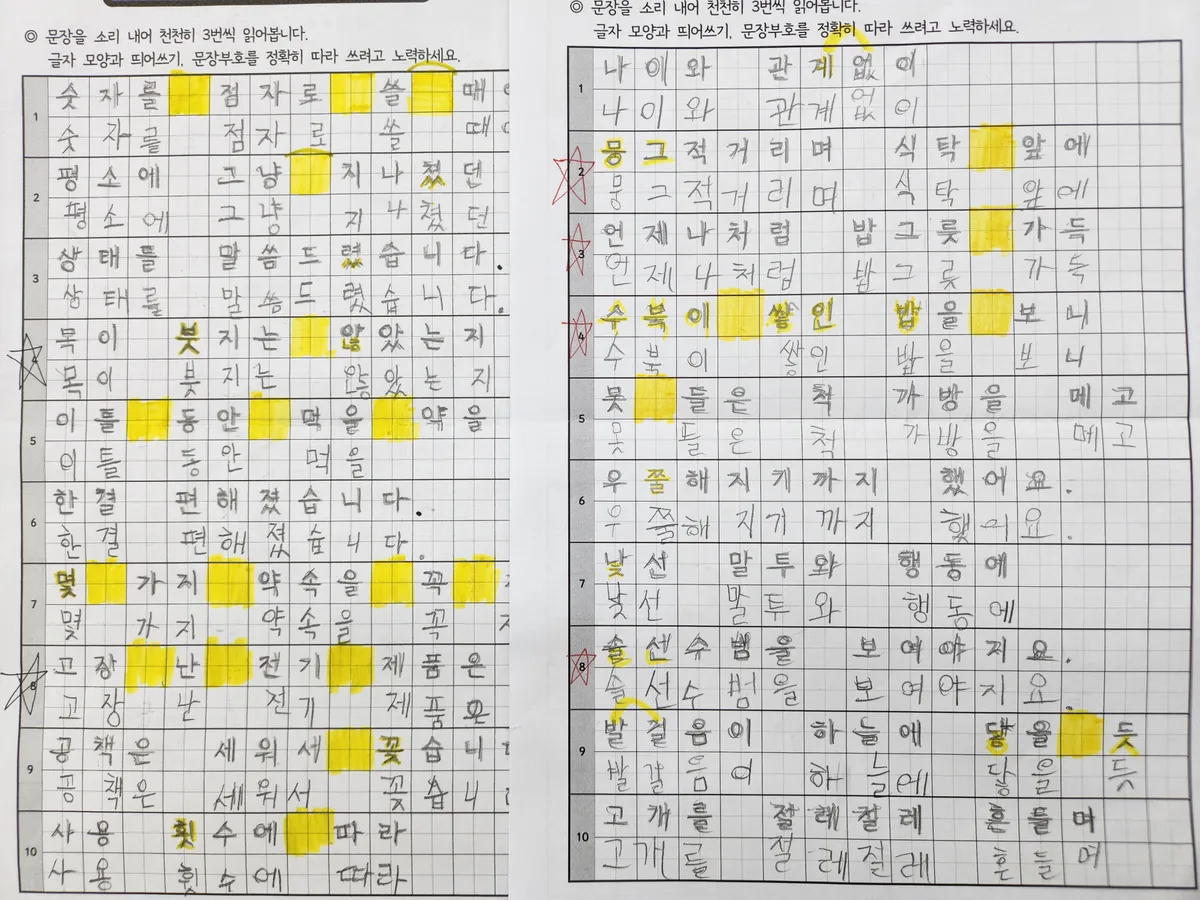 ◎ 문장을 소리 내어 천천히 3번씩 읽어봅니다.
글자 모양과 띄어쓰기, 문장부호를 정확히 따라 쓰려고 노력하세요.
1 숫자를 점자로 쓸 때
숫자를 점자로 쓸 때
2 평소에 그냥 지나쳤던
평소에 그냥 지나쳤던
3 상태를 말씀드렸습니다.
상태를 말씀드렸습니다.
4 목이 붓지는 않았는지
목이 붓지는 않았는지
5 이틀 동안 먹을 약을
이틀 동안 먹을
6 한결 편해졌습니다.
한결 편해졌습니다.
7 몇 가지 약속을 꼭
몇 가지 약속을 꼭
8 고장 난 전기 제품은
고장 난 전기 제품은
9 공책은 세워서 꽂습니
공책은 세워서 꽂습니
10 사용 횟수에 따라
사용 횟수에 따라
◎ 문장을 소리 내어 천천히 3번씩 읽어봅니다.
글자 모양과 띄어쓰기, 문장부호를 정확히 따라 쓰려고 노력하세요.
1 나이와 관계없이
나이와 관계없이
2 뭉그적거리며 식탁 앞에
뭉그적거리며 식탁 앞에
3 언제나처럼 밥그릇 가득
언제나처럼 밥그릇 가득
4 수북이 쌓인 밥을 보니
수북이 쌓인 밥을 보니
5 못 들은 척 가방을 메고
못 들은 척 가방을 메고
6 우쭐해지기까지 했어요.
우쭐해지기까지 했어요.
7 낯선 말투와 행동에
낯선 말투와 행동에
8 솔선수범을 보여야지요.
솔선수범을 보여야지요.
9 발걸음이 하늘에 닿을 듯
발걸음이 하늘에 닿을 듯
10 고개를 절레절레 흔들며
고개를 절레절레 흔들며